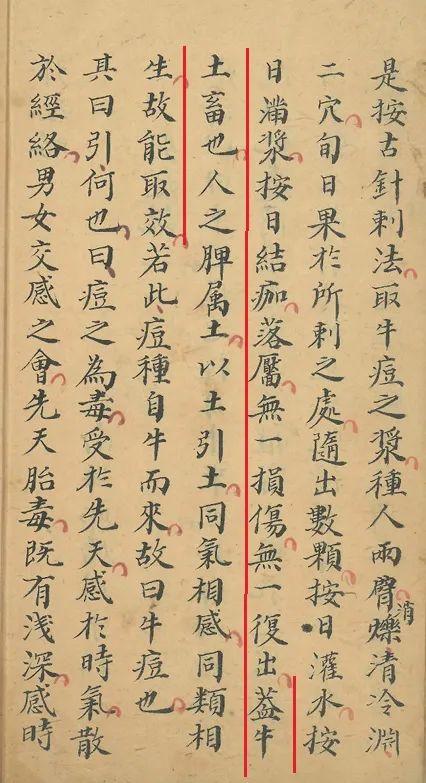 是按古針刺法取牛痘之漿種人兩臂爍消清冷淵
二穴旬日果於所刺之處隨出數顆按日灌水按
日滿漿按日結痂落靨無一損傷無一復出葢牛
土畜也人之脾属土以土引土同氣相感同類相
生故能取效若此痘種自牛而來故曰牛痘也
其曰引何也曰痘之為毒受於先天感於時氣散
於經絡男女交感之會先天胎毒既有浅深感時